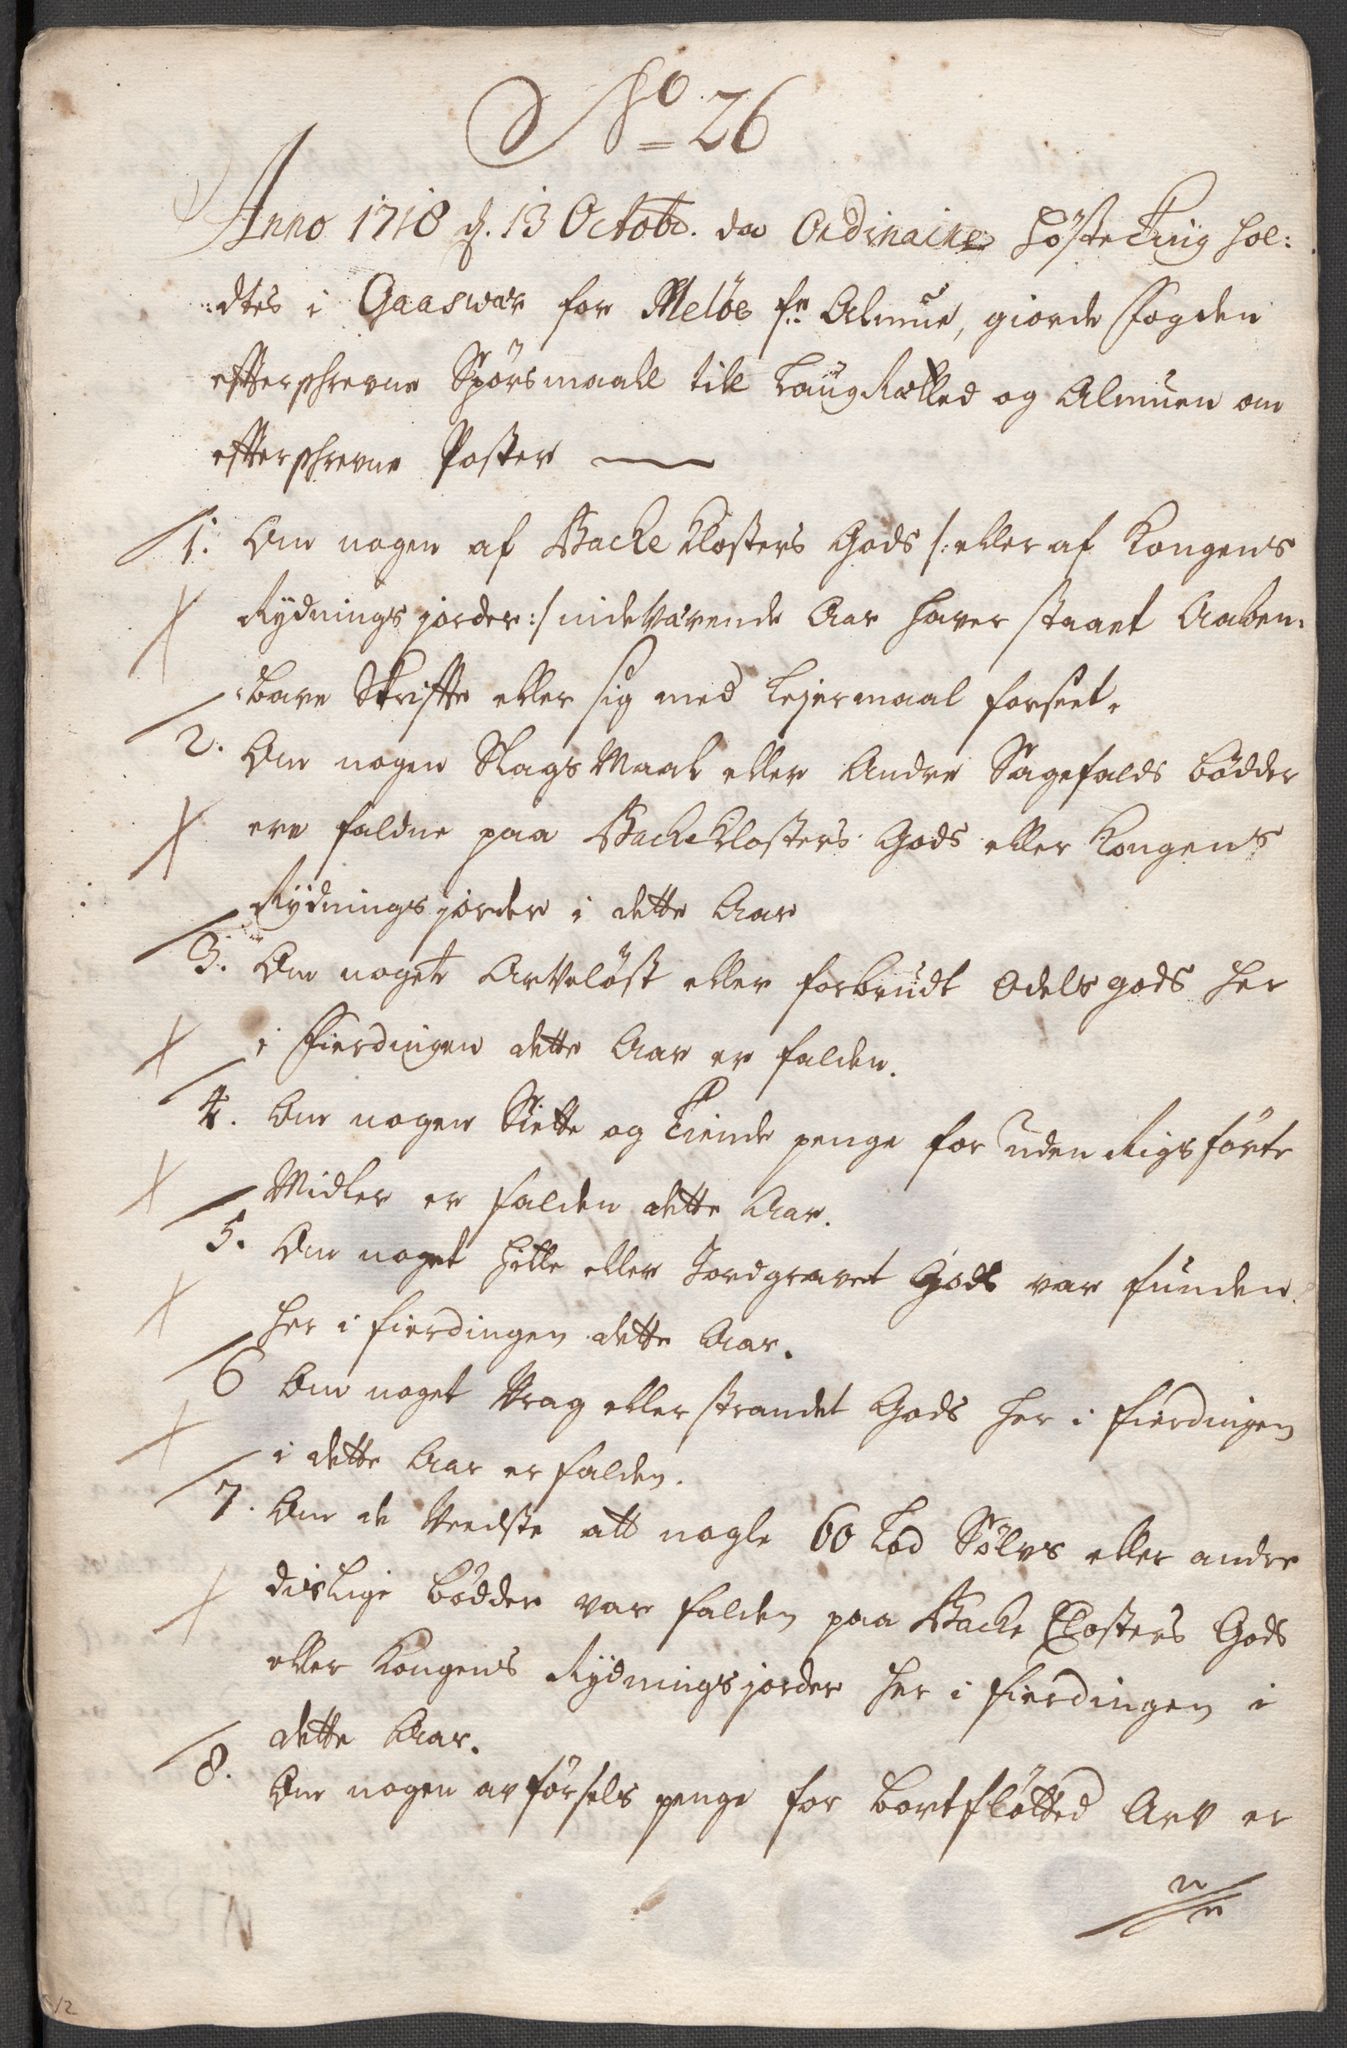 No 26
Anno 1718 d. 13 Octobr. da Ordinaire HøsteTing hol:
:dtes i Gaaswær for Meløe fr. Almue, giorde Fogden
efterschrevne Spørsmaall till LaugRætted og Almuen om
efterschrevne Poster
1. Om nogen af Backe Closters Gods /: eller af Kongens
Rydnings jorder :/ indeVærende Aar haver staaet Aaben:
:bare Skrifte eller sig med Lejermaal forseet.
2. Om nogen SlagsMaal eller Andre Sagefalds bødder
ere faldne paa BackeClosters Gods eller Kongens
Rydnings jorder i dette Aar
3. Om noget ArVeløst eller forbrudt Odels gods her
i Fierdingen dette Aar er falden.
4. Om nogen Siette og Tiende penge for udenRigsførte
Midler er falden dette Aar.
5. Om noget Hitte eller Jordgravet Gods var funden
her i fierdingen dette Aar.
6 Om noget Vrag eller strandet Gods her i fierdingen
i dette Aar er falden.
7. Om de Veedste att nogle 60 Lod Sølvs eller andre
dislige bødder var falden paa Backe Closters Gods
eller Kongens Rydnings jorder her i fierdingen i
dette Aar.
8. Om nogen avførsels penge for bortfløtted Arv er
12